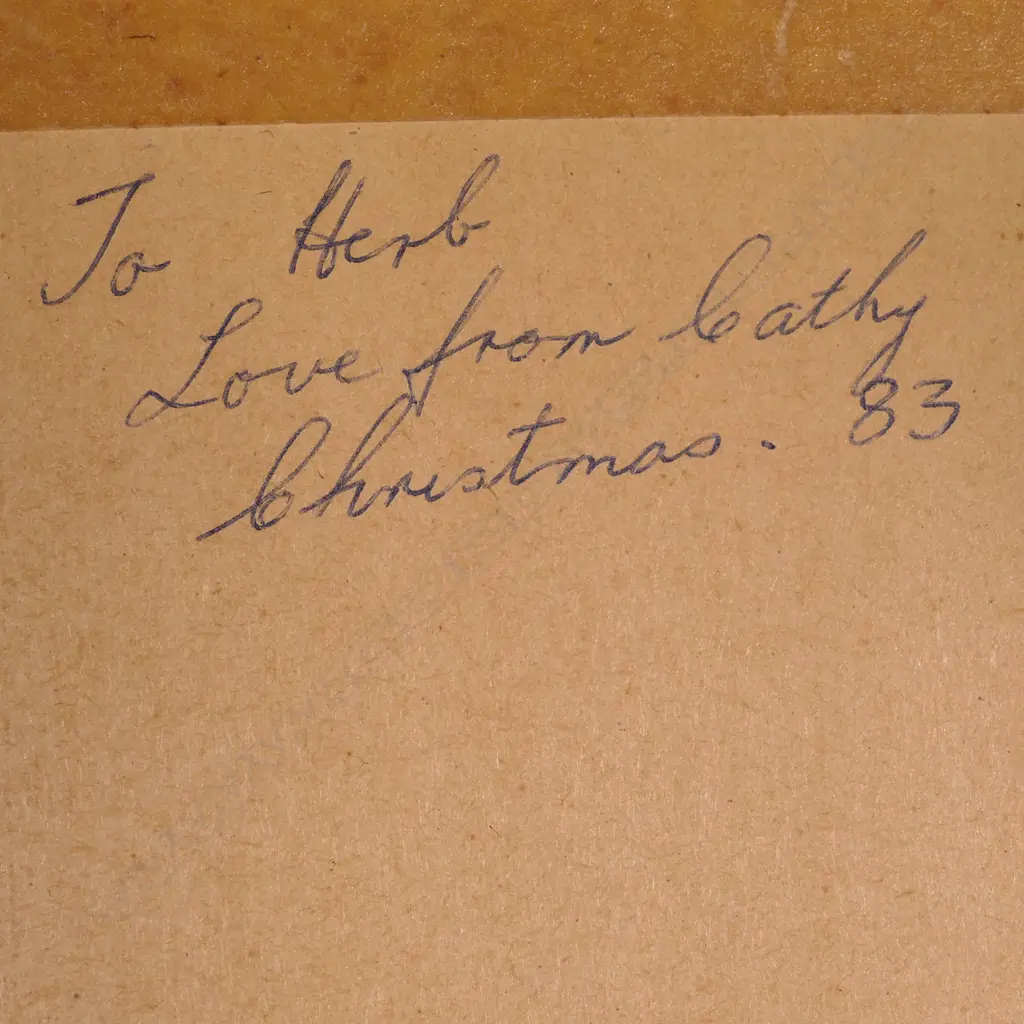 To Herb
Love from Cathy
Christmas. 83